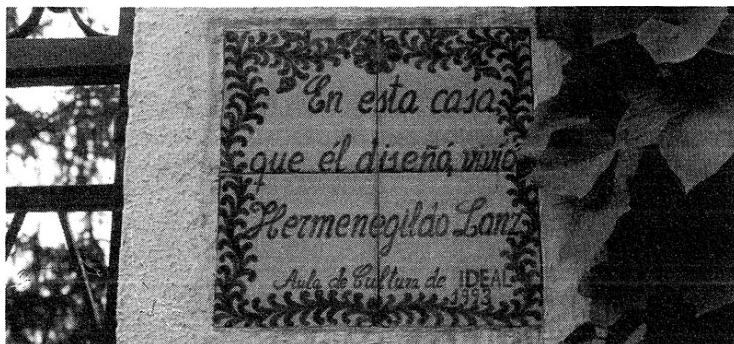 En esta casa
que él diseñó, vivió
Hermenegildo Lanz
Aula de Cultura de IDEAL
1993